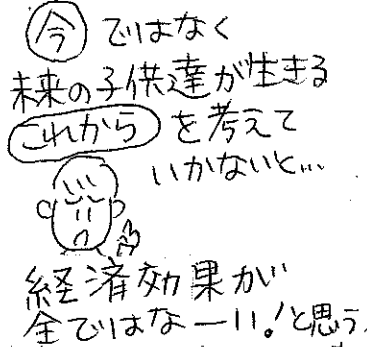 今ではなく
未来の子供達が生きる
これからを考えて
いかないと…
経済効果が
全てではなーい!と思う。